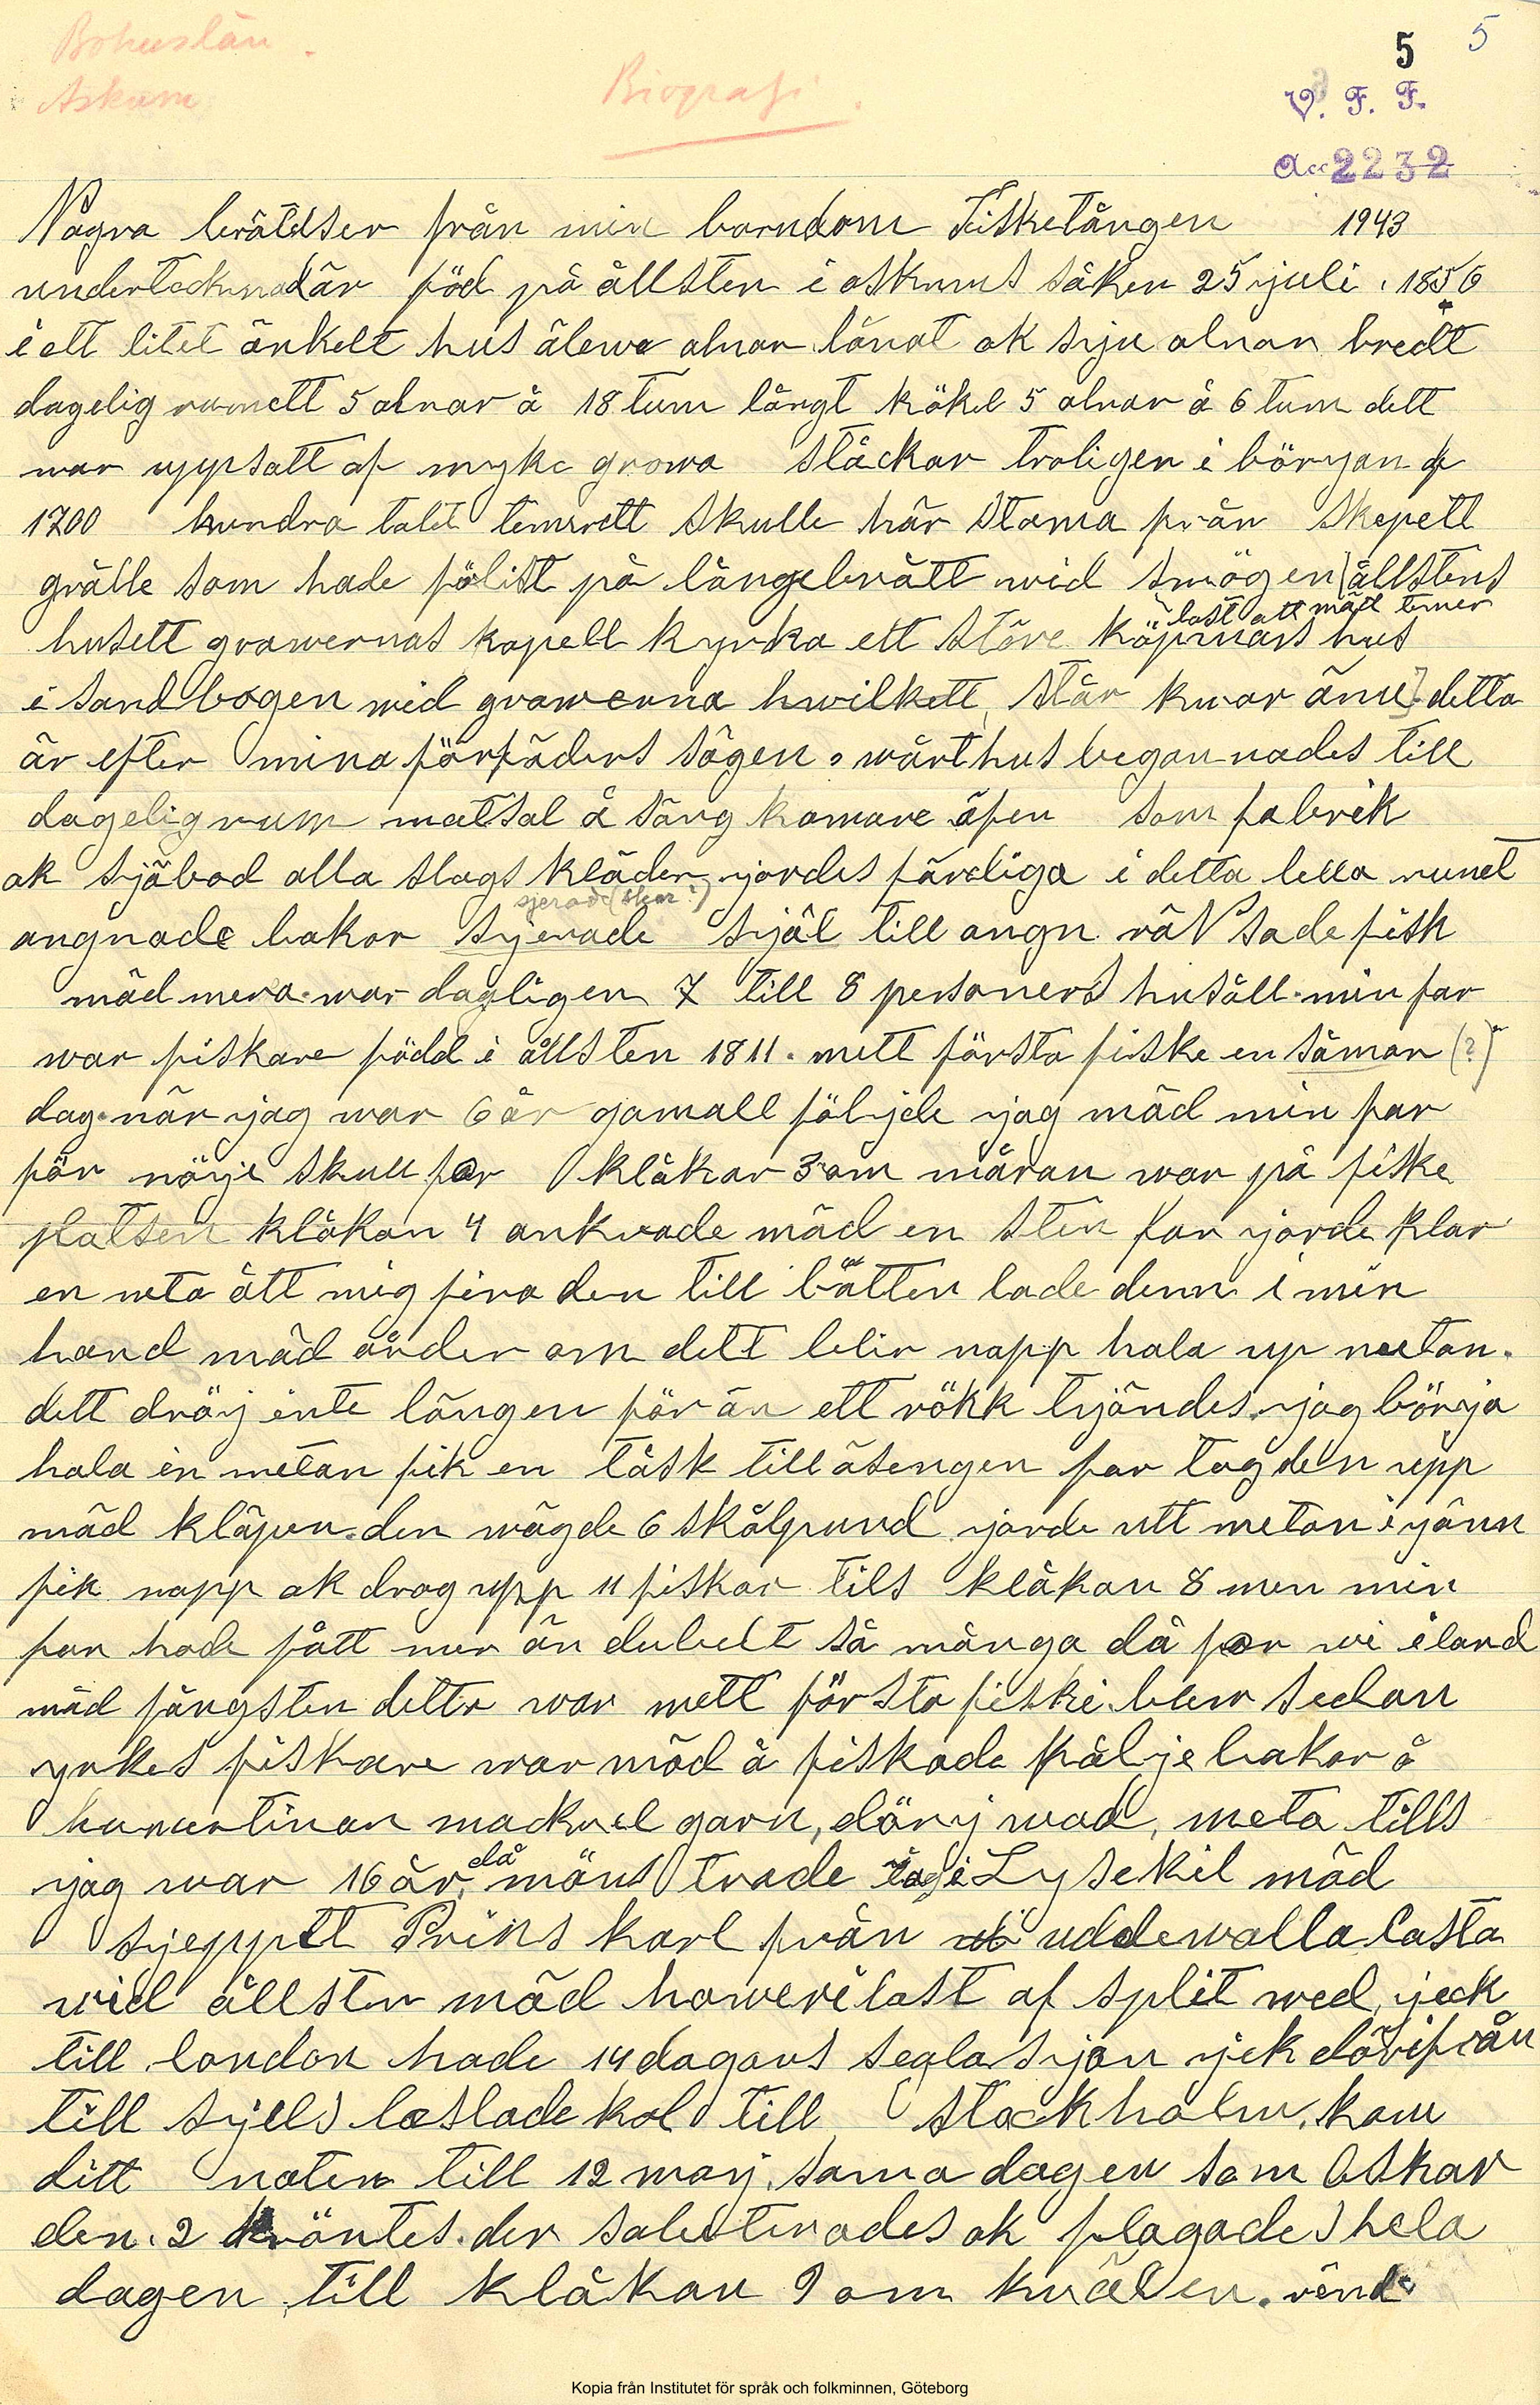 Bohuslän.
Askum
Biografi.
5
5
V. F. F.
Acc 2232
Några berätelser från min barndom Fisketången 1943
undertecknad är föd på ållsten i askums såken 25 juli 1856
i ett litet änkelt hus älewa alnar långt ok sju alnar bredt
dagelig rumett 5 alnar å 18 tum långt köket 5 alnar å 6 tum dett
war uppsatt af myke growa ståckar troligen i böryan af
1700 hundra talet temrett skulle här stama från skepett
grälle som hade förlist på långebrått wid smögen (ållstens
last att mätt temer
husett grawernas kapell kyrka ett störe köpmans hus
i sandbogen wid grawerna hwilkett står kwar änu) detta
är efter mina förfäders sägen, wårt hus begannades till
dageligrum matsal å säng kamare äfen som fabrik
ok sjäbod alla slags kläder jordes färdiga i detta lella rumet
sjerade (skar?)
angnade bakor sjerade själ till angn räNsade fisk
mäd mera. war dagligen 7 till 8 personers husåll. min far
war fiskare född i ållsten 1811. mett första fiske en såmar (?)
dag. när jag war 6 år gamall följde jag mäd min far
för nöje skull for klåkar 3 om måran war på fiske
platsen klåkan 4 ankrade mäd en sten far jorde klar
en meta ått mig fira den till båtten lade denn i min
hand mäd årder om dett blir napp hala up metan.
dett dröj inte längen för än ett rökk tjändes. jag börja
hala in metan fik en tåsk till åsengen far tog den upp
mäd kläpen. den wägde 6 skålpund jorde utt metan i jänn
fik napp ok drog upp 11 fiskar tils klåkan 8 men min
far hade fått mer än dubelt så många då for wi i land
mäd fångsten detta war mett första fiske. blew sedan
yrkes fiskare war mäd å fiskade kålje bakor å
humertinar mackrel garn, dörj wad, meta tills
jag war 16 år, då mönstrade jag i Lysekil mäd
sjeppet Prins karl från uddewalla lasta
wid ållsten mäd haweri last af split wed, jeck
till london hade 14 dagars segla sjan jek därifrån
till sjells lastade kol till stockholm. kom
ditt naten till 12 maj. sama dagen som Oskar
den. 2 kröntes. der saluterades ok flagades hela
dagen till klåkan 9 om kwälen. vend
Kopia från Institutet för språk och folkminnen, Göteborg